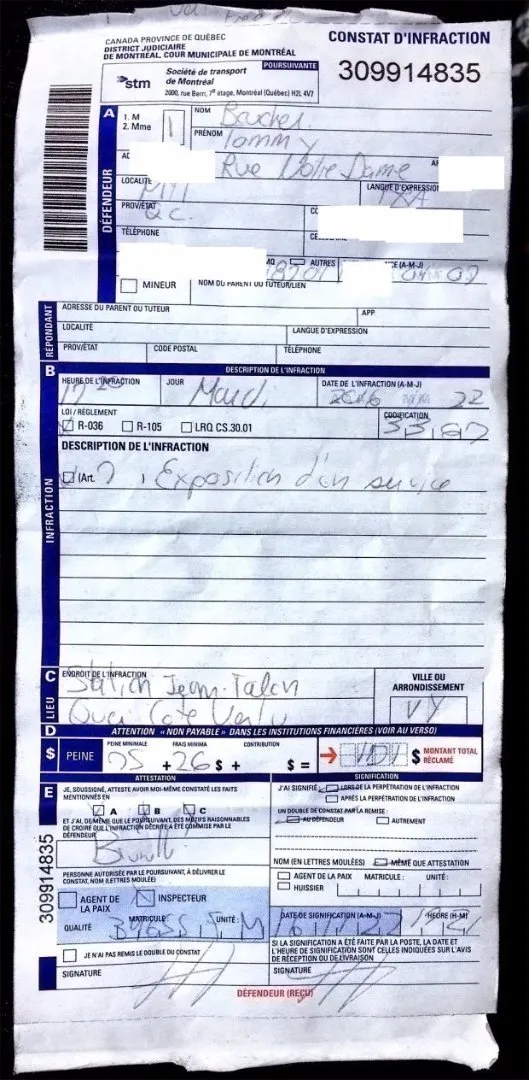 CANADA PROVINCE DE QUÉBEC
DISTRICT JUDICIAIRE
DE MONTRÉAL, COUR MUNICIPALE DE MONTRÉAL
CONSTAT D'INFRACTION
309914835
POURSUIVANTE
stm
Société de transport
de Montréal
2000, rue Berri, 7e étage, Montréal (Québec) H2L 4V7
DÉFENDEUR
A
1. M
2. Mme
1
NOM
PRÉNOM
Tommy
Rue Notre Dame
LOCALITÉ
Mtl
LANGUE D'EXPRESSION
PROV/ÉTAT
Qc.
TÉLÉPHONE
AUTRES
(A-M-J)
MINEUR
NOM DU PARENT OU TUTEUR/LIEN
RÉPONDANT
ADRESSE DU PARENT OU TUTEUR
APP
LOCALITÉ
LANGUE D'EXPRESSION
PROV/ÉTAT
CODE POSTAL
TÉLÉPHONE
B
DESCRIPTION DE L'INFRACTION
HEURE DE L'INFRACTION
JOUR
Mardi
DATE DE L'INFRACTION (A-M-J)
2016
22
LOI / RÈGLEMENT
R-036
R-105
LRQ CS.30.01
CODIFICATION
DESCRIPTION DE L'INFRACTION
(Art.
Exposition d'un service
INFRACTION
C
LIEU
ENDROIT DE L'INFRACTION
Station Jean-Talon
Quai Côte Vertu
VILLE OU
ARRONDISSEMENT
VY
D
ATTENTION « NON PAYABLE » DANS LES INSTITUTIONS FINANCIÈRES (VOIR AU VERSO)
$
PEINE
PEINE MINIMALE
FRAIS MINIMA
CONTRIBUTION
+ 26 $ +
$ =
101 $
MONTANT TOTAL
RÉCLAMÉ
ATTESTATION
SIGNIFICATION
E
JE, SOUSSIGNÉ, ATTESTE AVOIR MOI-MÊME CONSTATÉ LES FAITS
MENTIONNÉS EN
A
B
C
ET J'AI, DE MÊME QUE LE POURSUIVANT, DES MOTIFS RAISONNABLES
DE CROIRE QUE L'INFRACTION DÉCRITE A ÉTÉ COMMISE PAR LE
DÉFENDEUR
J'AI SIGNIFIÉ
LORS DE LA PERPÉTRATION DE L'INFRACTION
APRÈS LA PERPÉTRATION DE L'INFRACTION
UN DOUBLE DE CONSTAT PAR LA REMISE :
AU DÉFENDEUR
AUTREMENT
309914835
PERSONNE AUTORISÉE PAR LE POURSUIVANT, À DÉLIVRER LE
CONSTAT, NOM (LETTRES MOULÉES)
NOM (EN LETTRES MOULÉES)
MÊME QUE ATTESTATION
AGENT DE LA PAIX
MATRICULE :
UNITÉ :
HUISSIER
AGENT DE
LA PAIX
INSPECTEUR
QUALITÉ
MATRICULE
UNITÉ
DATE DE SIGNIFICATION (A-M-J)
HEURE (H-M)
JE N'AI PAS REMIS LE DOUBLE DU CONSTAT
SI LA SIGNIFICATION A ÉTÉ FAITE PAR LA POSTE, LA DATE ET
L'HEURE DE SIGNIFICATION SONT CELLES INDIQUÉES SUR L'AVIS
DE RÉCEPTION OU DE LIVRAISON
SIGNATURE
SIGNATURE
DÉFENDEUR (REÇU)